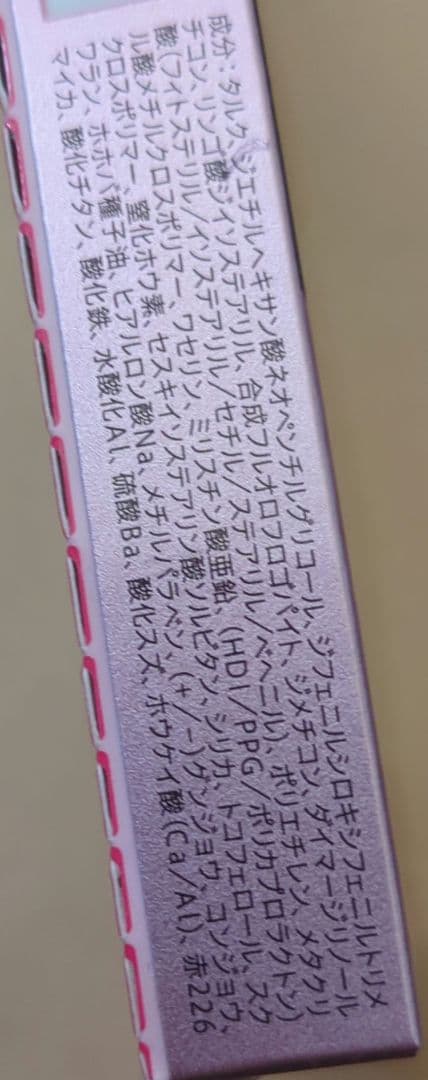 成分：タルク、ジエチルヘキサン酸ネオペンチルグリコール、ジフェニルシロキシフェニルトリメ
チコン、リンゴ酸ジイソステアリル、合成フルオロフロゴパイト、ジメチコン、ダイマージリノール
酸(フィトステリル/イソステアリル/セチル/ステアリル/ベヘニル)、ポリエチレン、メタクリ
ル酸メチルクロスポリマー、ワセリン、ミリスチン酸亜鉛、(HDI/PPG/ポリカプロラクトン)
クロスポリマー、窒化ホウ素、セスキイソステアリン酸ソルビタン、シリカ、トコフェロール、スク
ワラン、ホホバ種子油、ヒアルロン酸Na、メチルパラベン、(+/-)グンジョウ、コンジョウ、
マイカ、酸化チタン、酸化鉄、水酸化Al、硫酸Ba、酸化スズ、ホウケイ酸(Ca/Al)、赤226